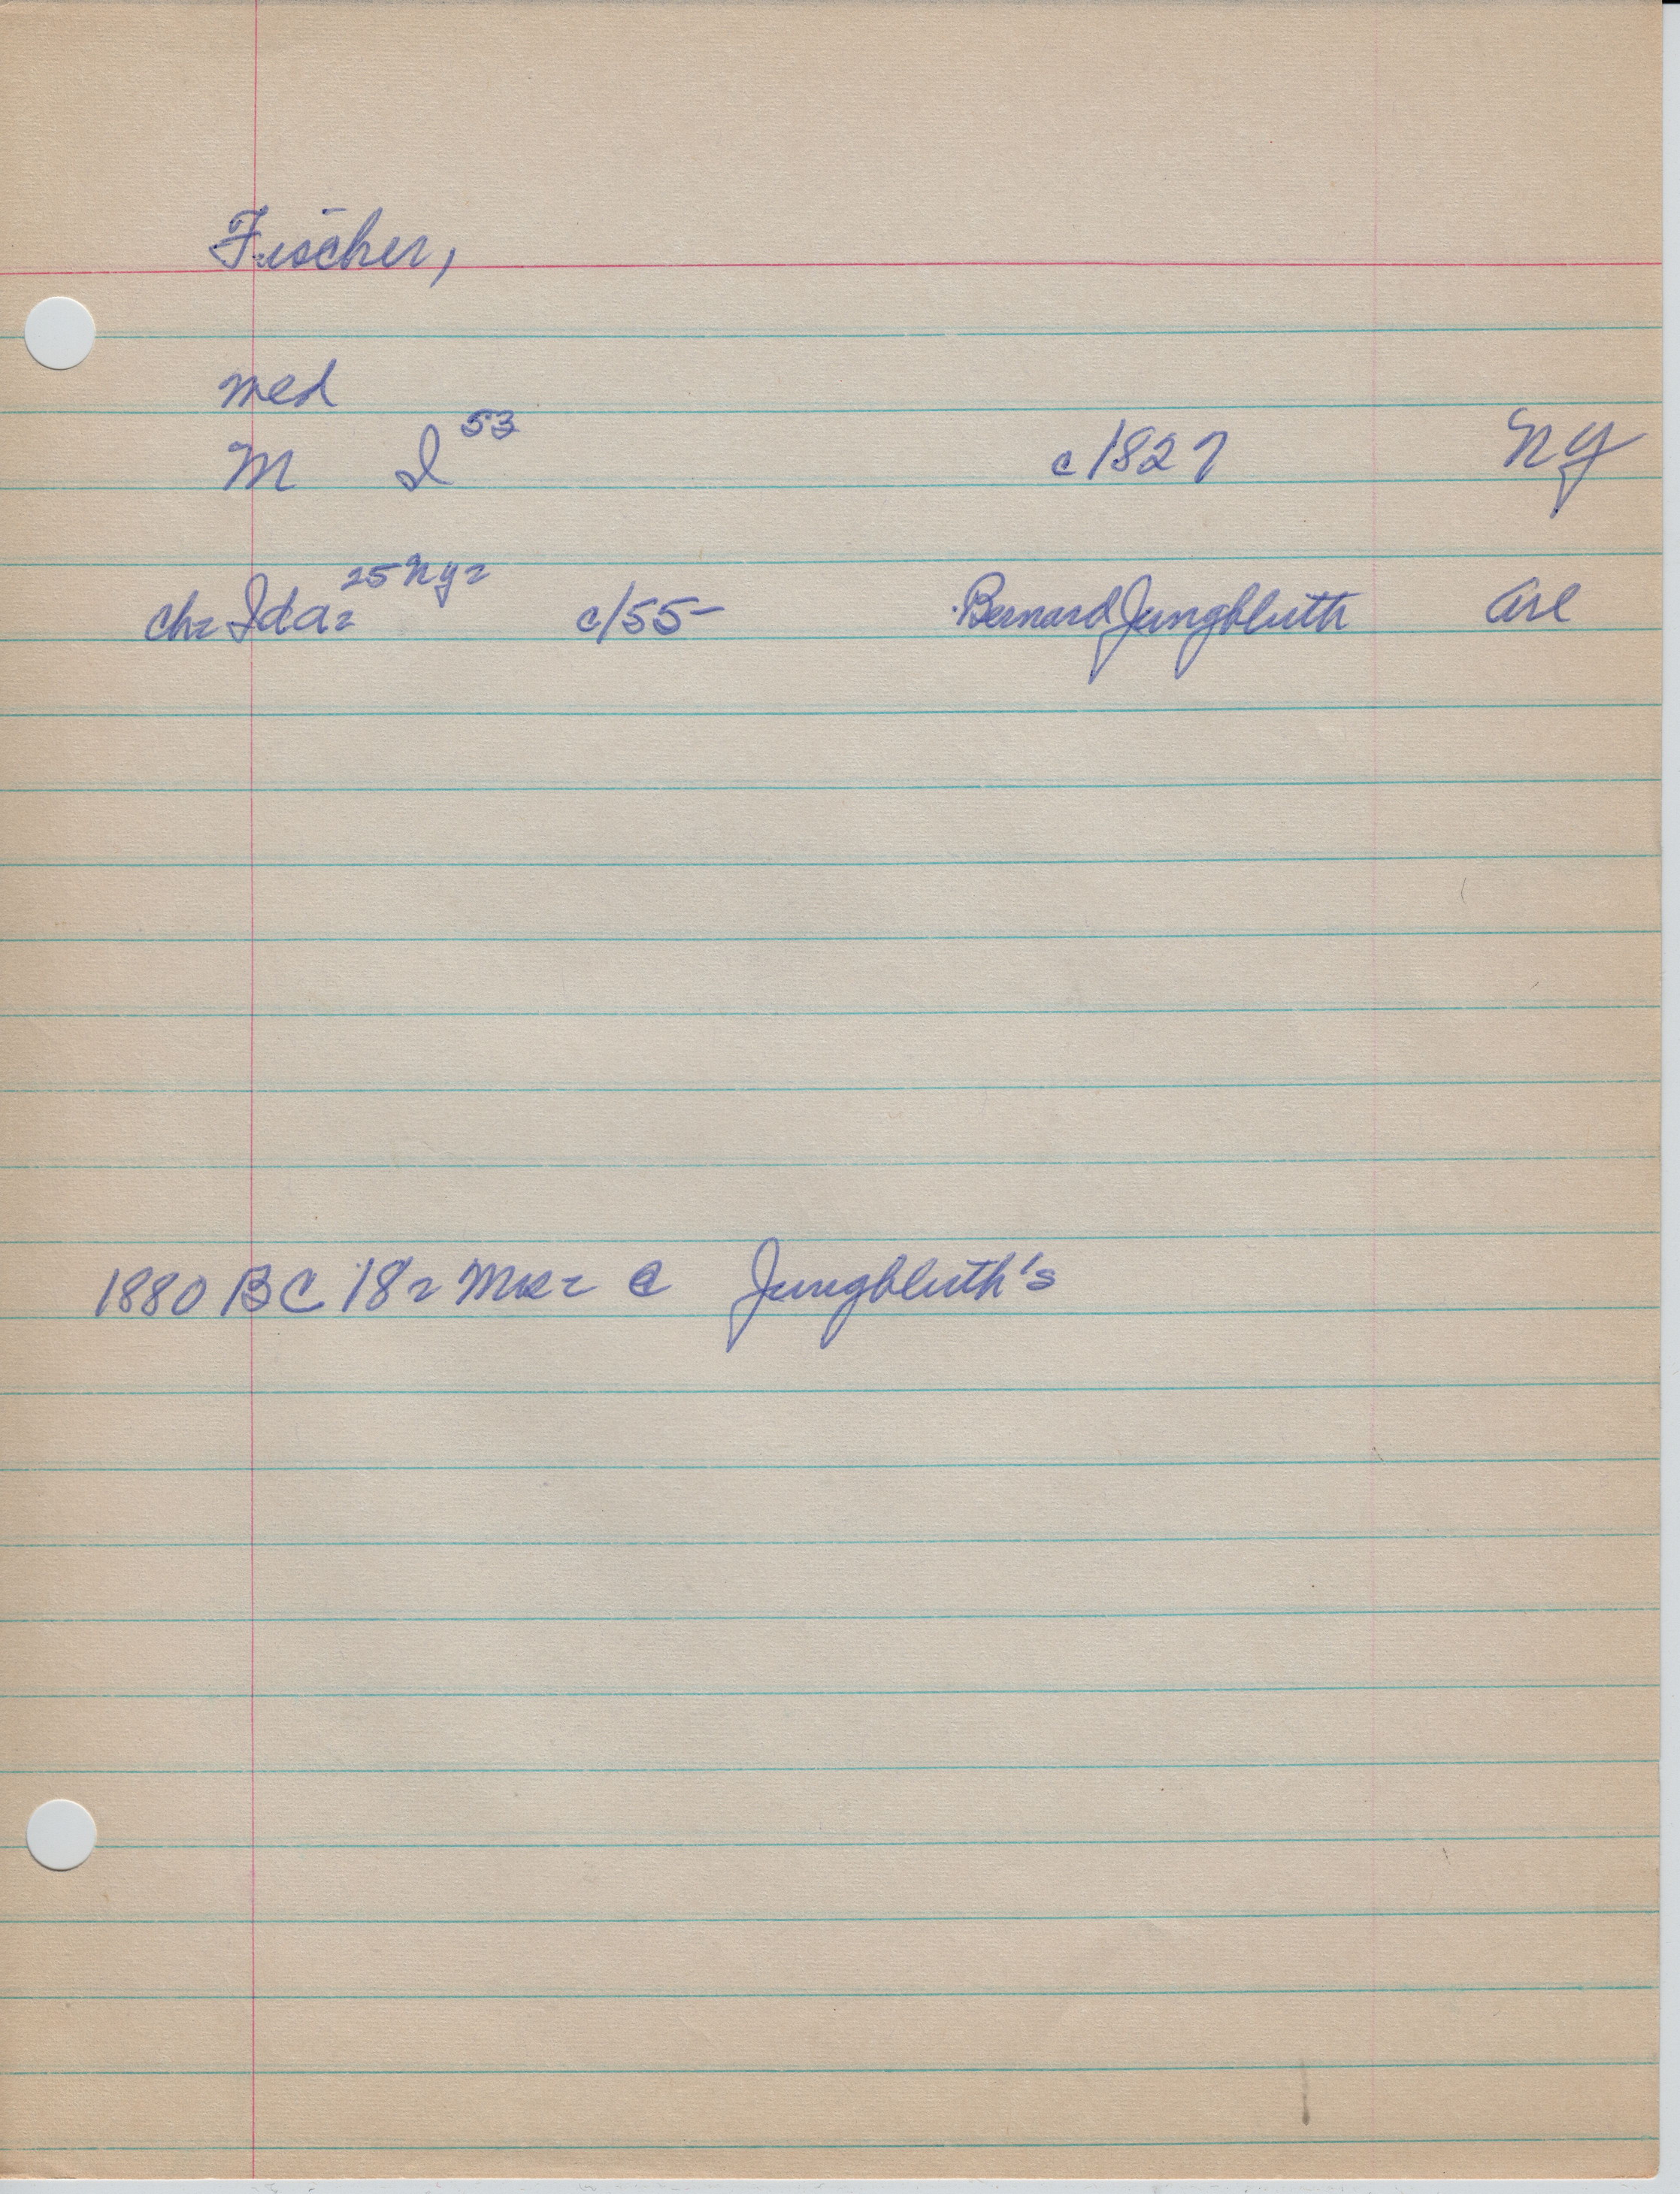 Fischer,
med
M I 53 c/1827 NY
ch= Ida= 25 NY= c/55- Bernard Jungbluth Arl
1880 BC 18= Mrs= @ Jungbluth's